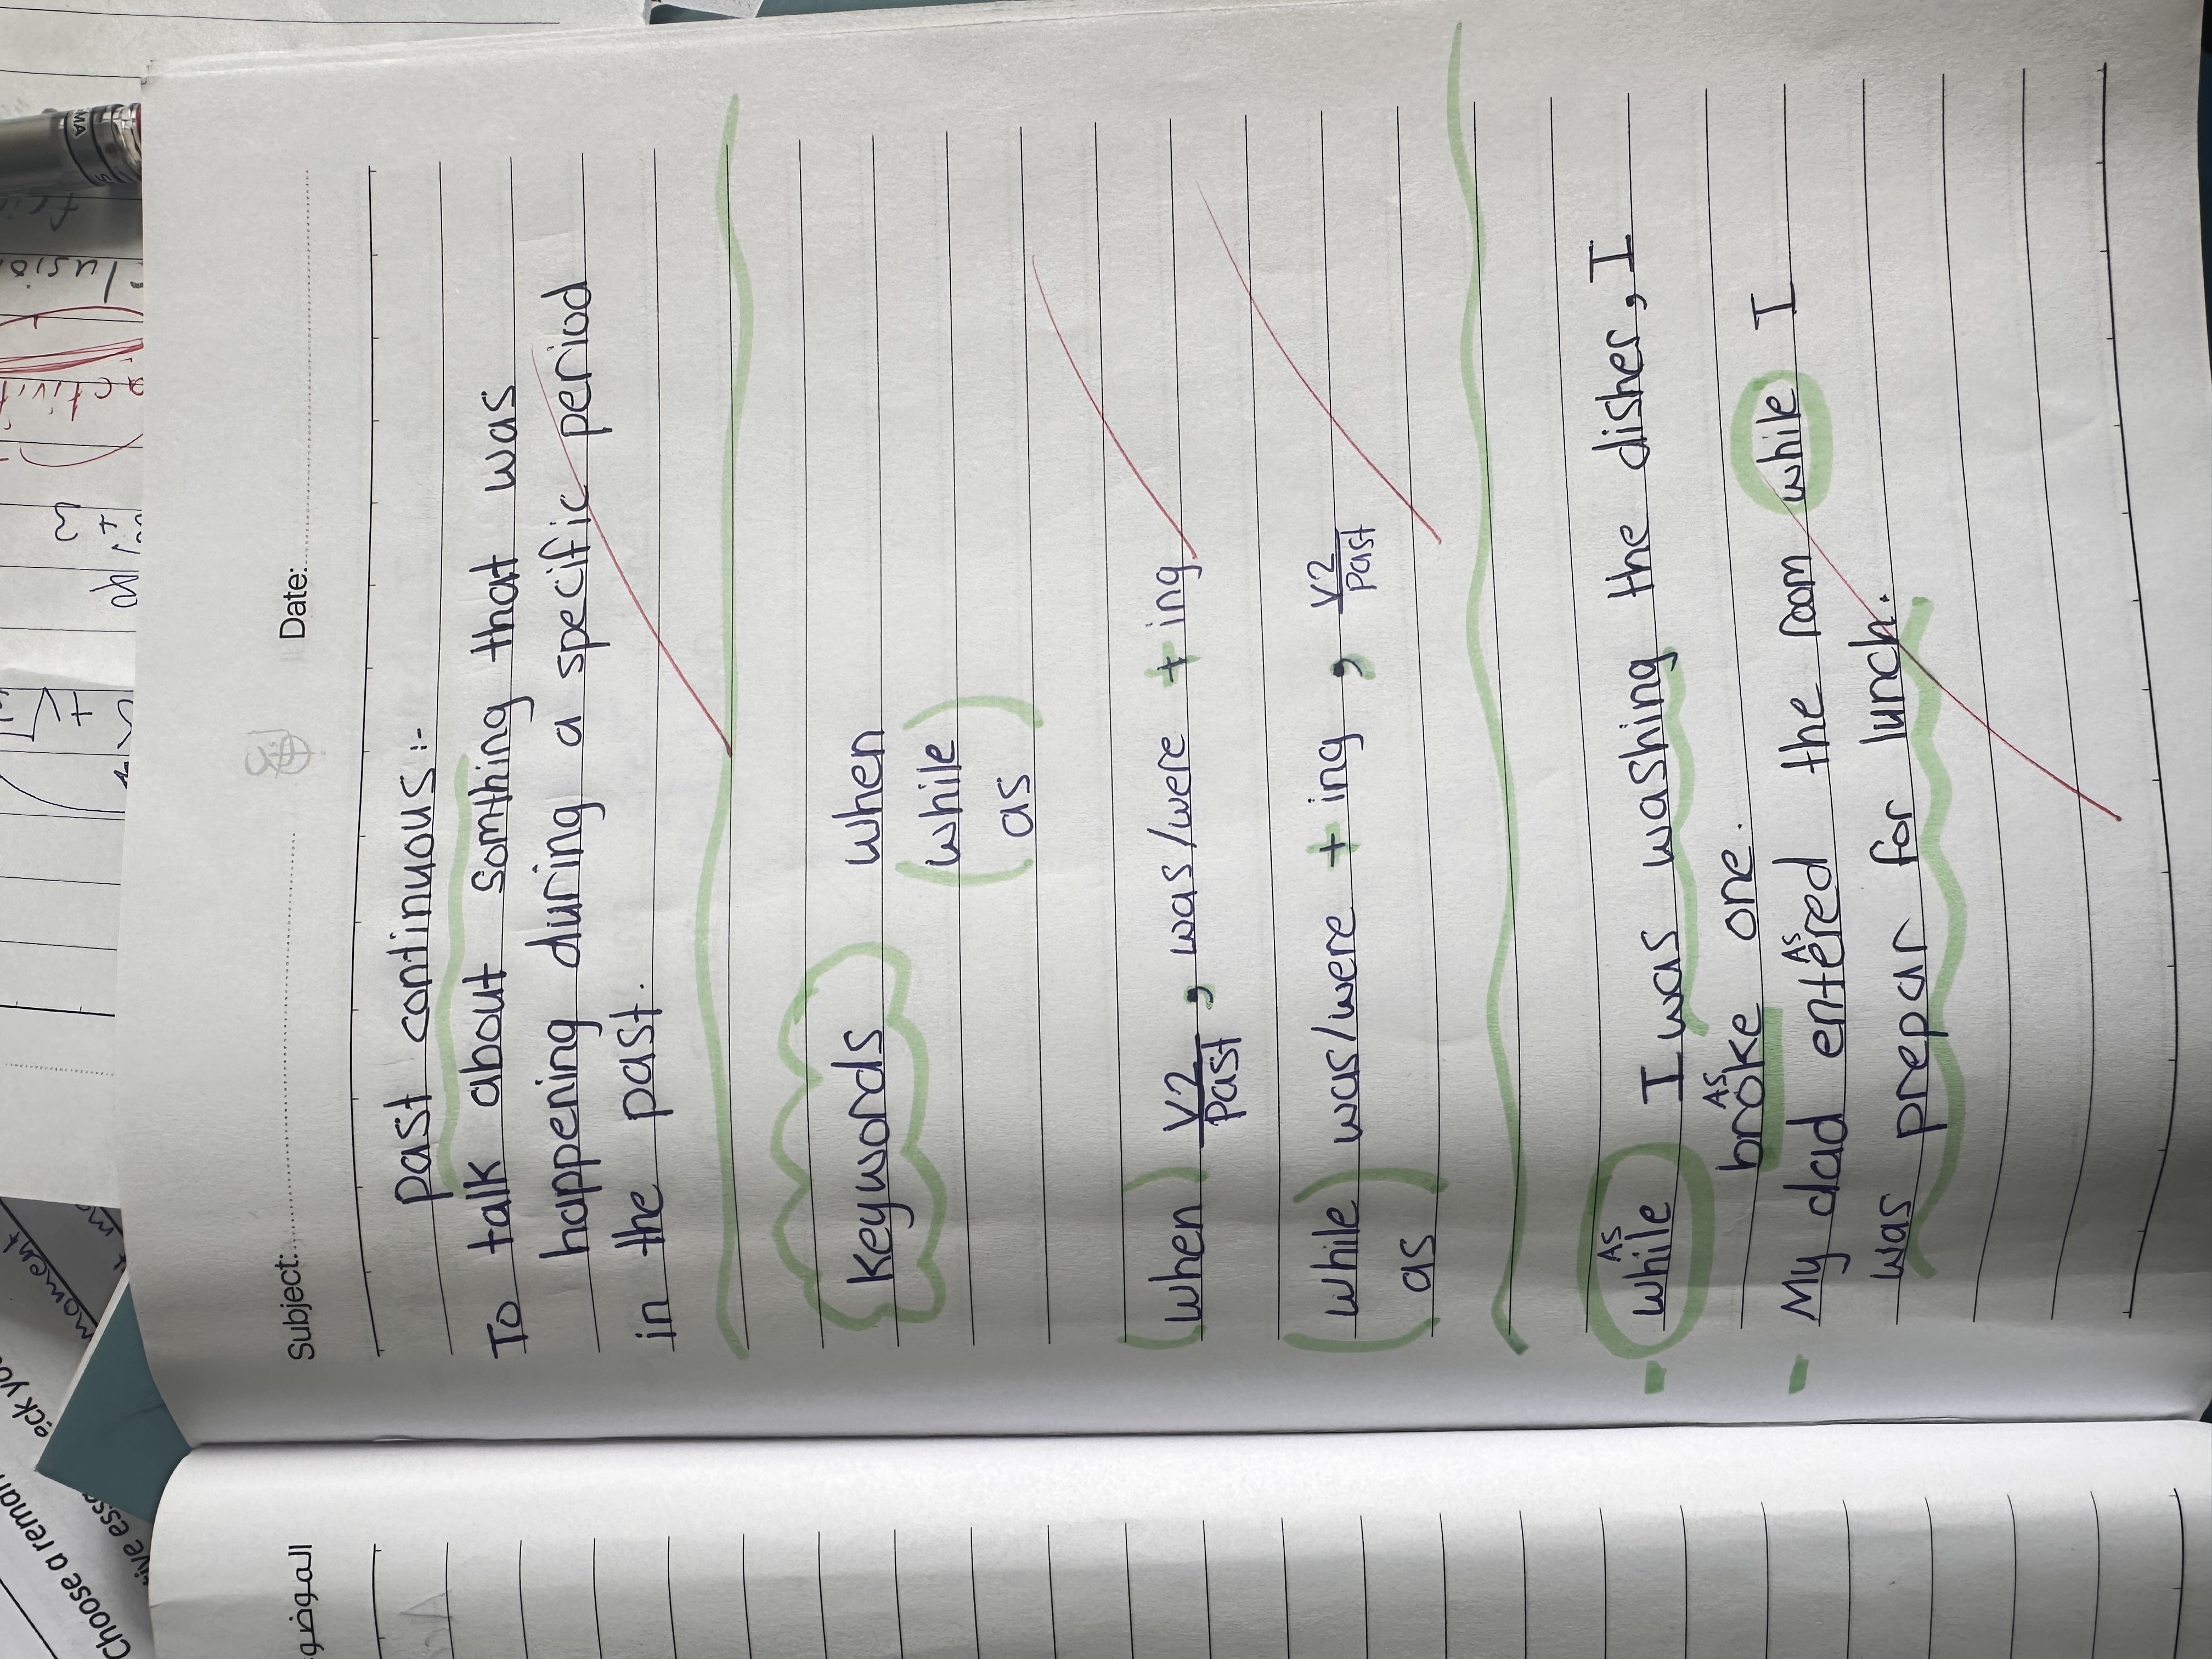 Subject: Date:
past continuous :-
To talk about somthing that was
happening during a specific period
in the past.
Keywords when
(while)
as
(when) V2/Past , was/were + ing
(while) was/were + ing , V2/Past
as
- while I was washing the disher, I
As
broke one.
As
- My dad entered the room while I
As
was prepar for lunch.
الموضو
Choose a remar
ive esse
eck yo
moment
lusion
activit